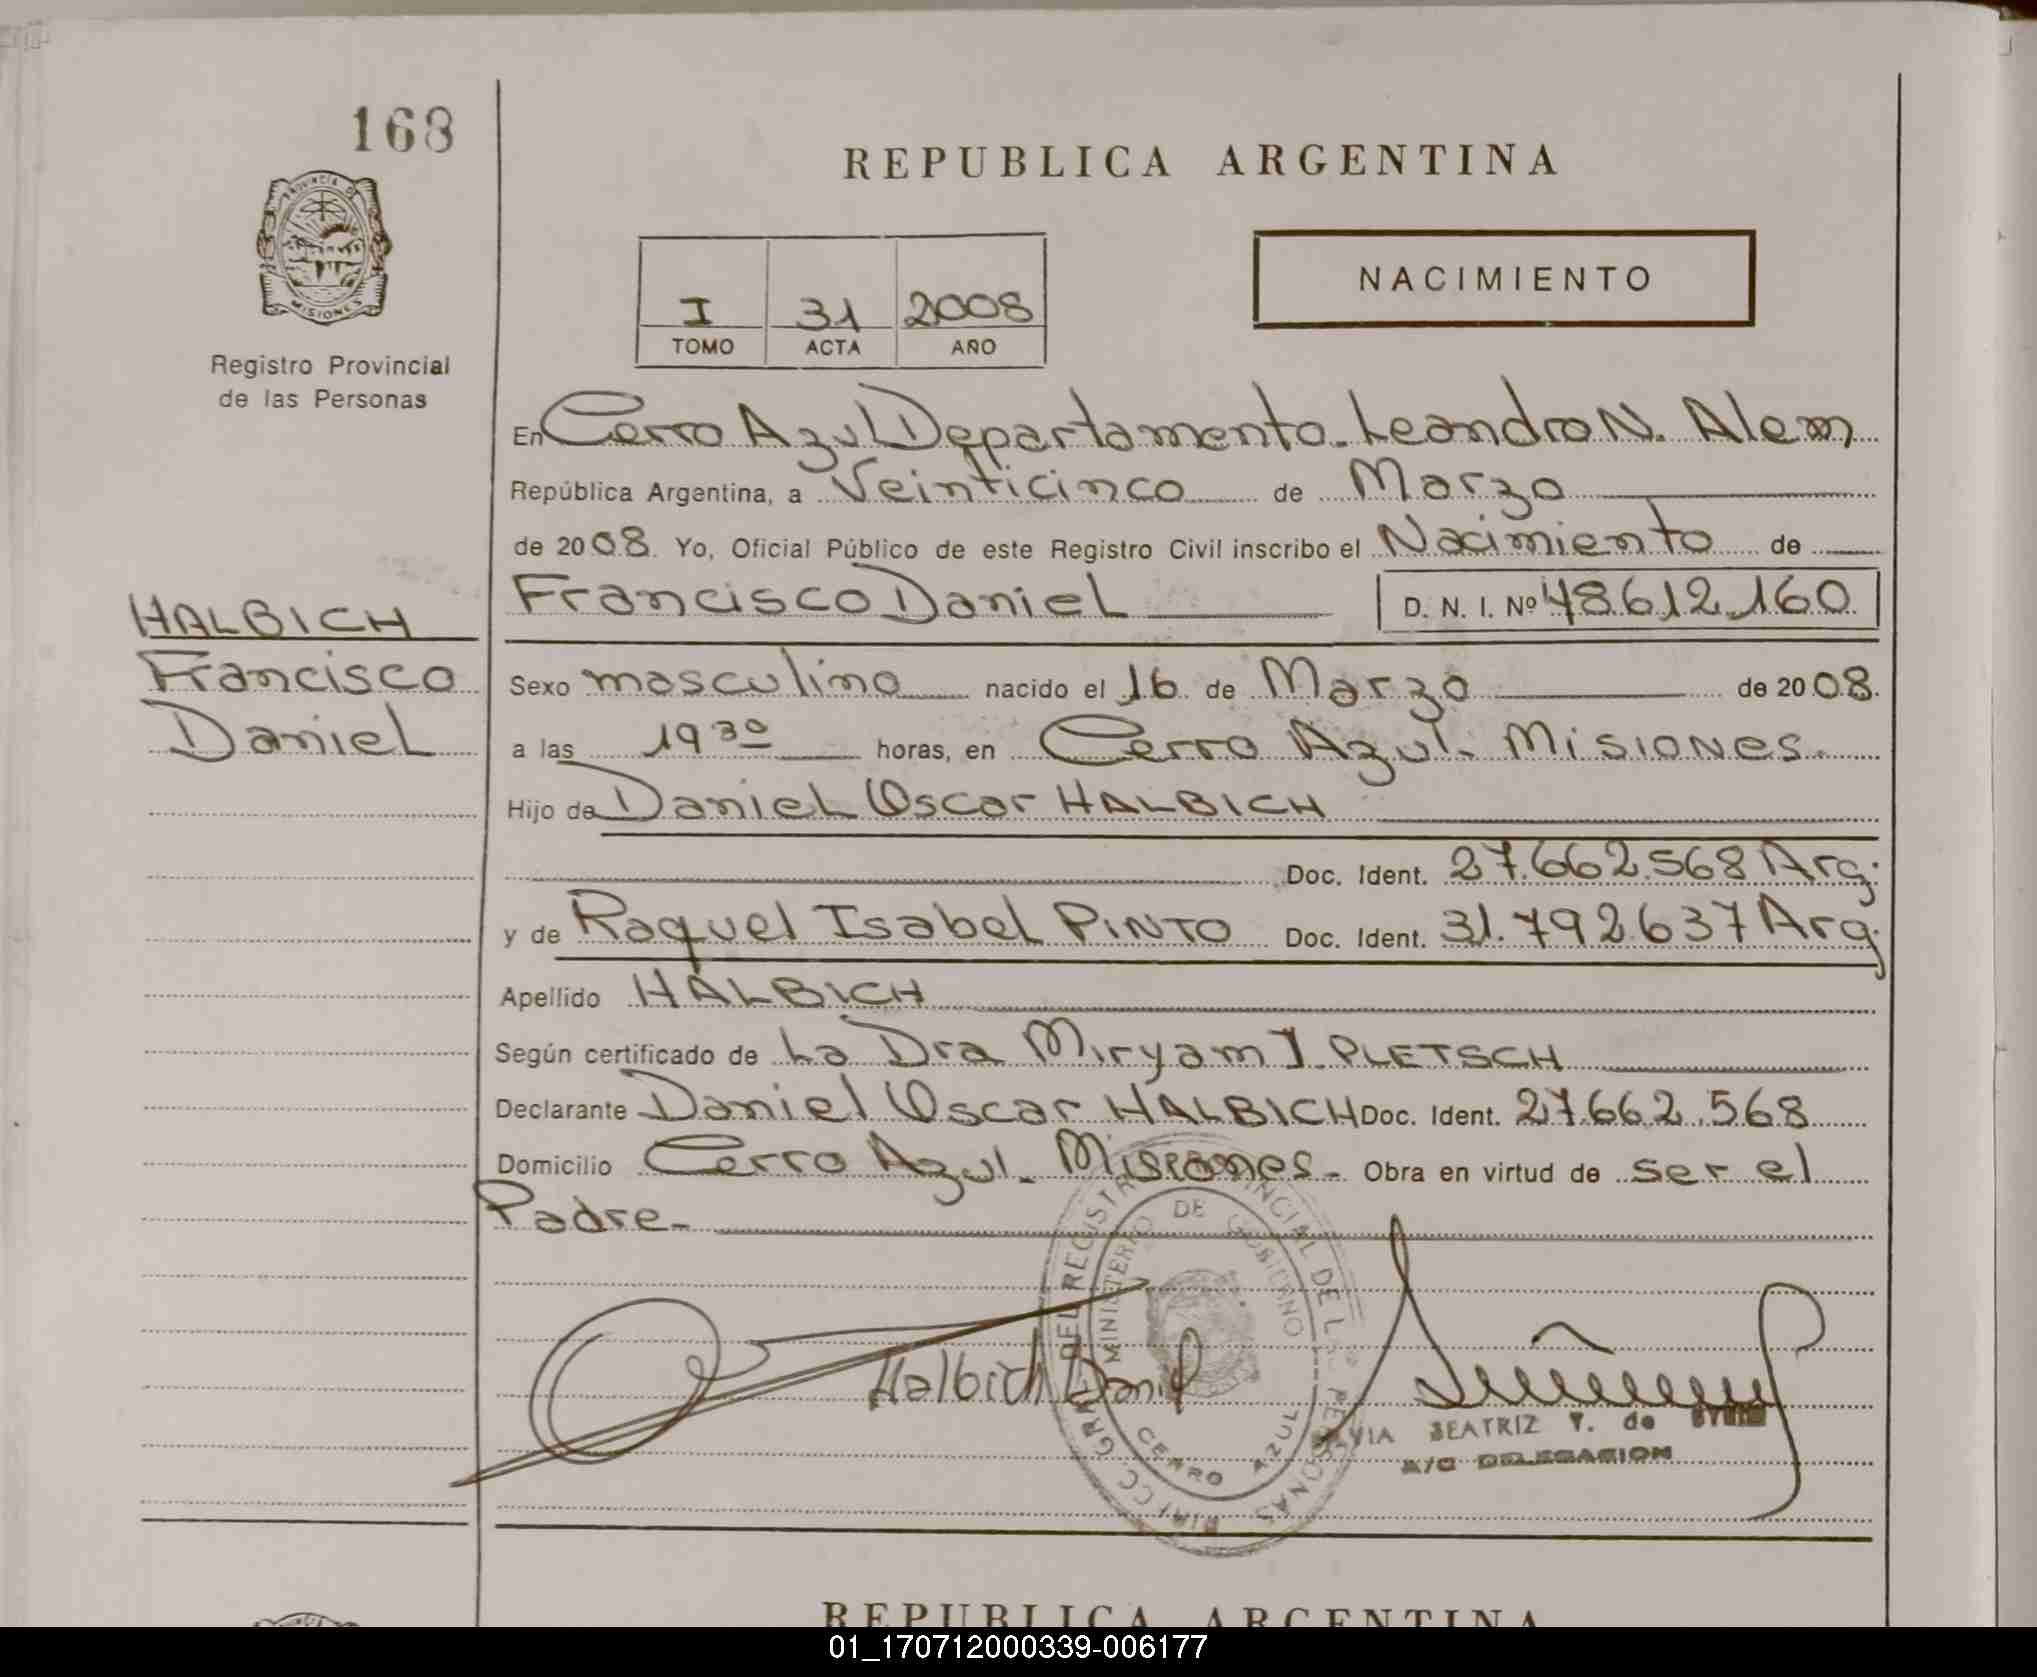 168
REPUBLICA ARGENTINA
PROVINCIA DE
MISIONES
NACIMIENTO
I 31 2008
TOMO ACTA AÑO
Registro Provincial
de las Personas
En Cerro Azul Departamento Leandro N. Alem
República Argentina, a Veinticinco de Marzo
de 2008. Yo, Oficial Público de este Registro Civil inscribo el Nacimiento de
Francisco Daniel D. N. I. Nº 48.612.160
HALBICH
Francisco
Daniel
Sexo masculino nacido el 16 de Marzo de 2008.
a las 19 30 horas, en Cerro Azul. Misiones.
Hijo de Daniel Oscar HALBICH
Doc. Ident. 27.662.568 Arg.
y de Raquel Isabel PINTO Doc. Ident. 31.792.637 Arg.
Apellido HALBICH
Según certificado de La Dra Miryam J. PLETSCH
Declarante Daniel Oscar HALBICH Doc. Ident. 27.662.568
Domicilio Cerro Azul. Misiones. Obra en virtud de ser el
Padre.
MINISTERIO DE GOBIERNO
CERRO AZUL
Halbich Daniel
BEATRIZ V. de
A/C DELEGACION
REPUBLICA ARGENTINA
01_170712000339-006177